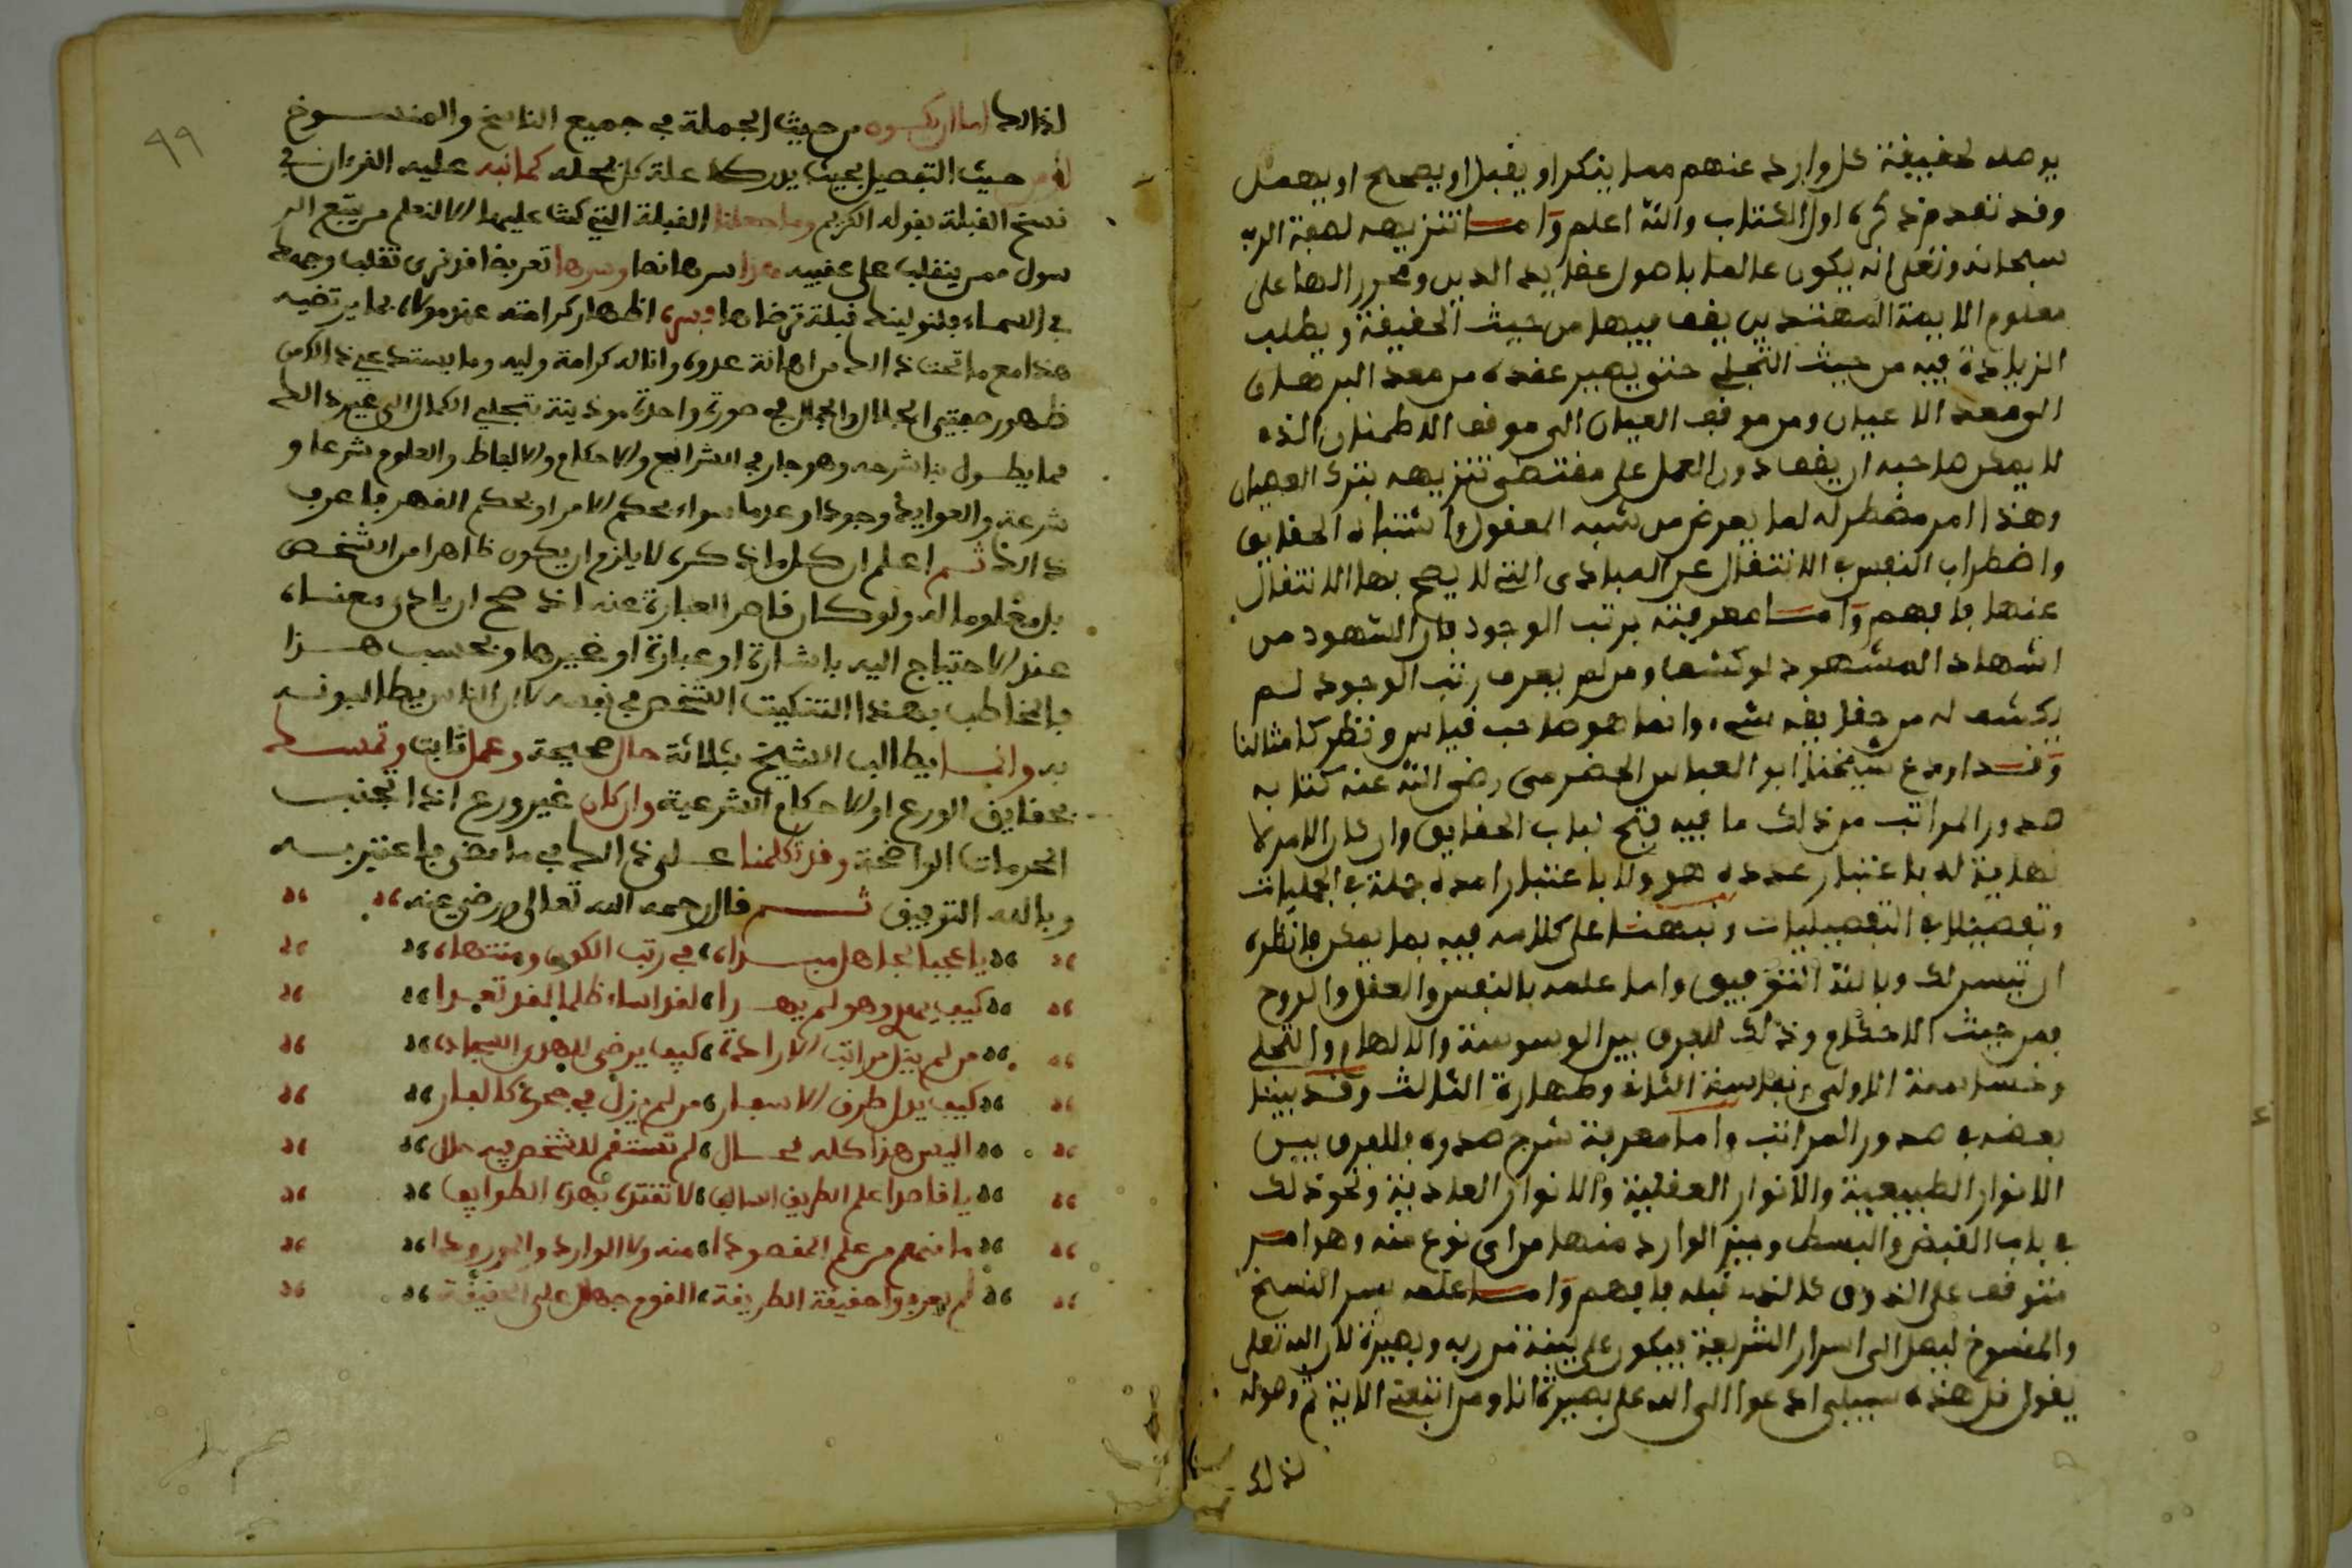 يوصله لحقيقة كل وارد عنهم مما ينكر او يقبل او يصحح او يهمل
وقد تقدم ذكره اول الكتاب والله اعلم واما تنزيهه لصفة الرب
سبحانه وتعلى انه يكون عالما باصول عقايد الدين ومحرر الها على
معلوم الايمة المهتدين يقف فيها من حيث الحقيقة ويطلب
الزيادة فيه من حيث التجلي حتى يصير عقده من مقعد البرهان
الى مقعد الاعيان ومن موقف العيان الى موقف الاطمنان الذي
لا يمكن صاحبه ان يقف دون العمل على مقتضى تنزيهه بترك العصيان
وهذا امر مضطر له لما يعرض من شبه العقول واشتباه الحقايق
واضطراب النفس في الانتقال عن المبادى التي لا يصح بها الانتقال
عنها فافهم واما معرفته برتب الوجود فان الشهود من
اشهاد المشهود لوكشفا ومن لم يعرف رتب الوجود لم
يكشف له من حقايقه شيء وانما هو صاحب قياس ونظر كامثالنا
وقد اودع شيخنا ابو العباس الحضرمى رضى الله عنه كتابه
صدور المراتب من ذلك ما فيه فتح لباب الحقايق وان كان الامر لا
نهاية له باعتبار عدده هو ولا باعتبار امده جملة في الجمليات
وتفصيلا في التفصيليات ونبهنا على كلامه فيه بما يمكن فانظره
ان تيسر لك وبالله التوفيق واما علمه بالنفس والعقل والروح
فمن حيث الاحكام وذلك الفرق بين الوسوسة والالهام والتجلي
وخساسة الاولى ونفاسة الثانى وطهارة الثالث وقد بينا
بعضه في صدور المراتب واما معرفة شرح صدره فللفرق بين
الانوار الطبيعية والانوار العقلية والانوار العادية ونحو ذلك
في باب القبض والبسط وميز الوارد منها من اى نوع منه وهو امر
متوقف على الذوق كالذى قبله فافهم واما علمه بسر النسخ
والمنسوخ ليصل الى اسرار الشريعة فيكون على بينة من ربه وبصيرة لان الله تعلى
يقول قل هذه سبيلى ادعوا الى الله على بصيرة انا ومن اتبعنى الاية ثم وصوله
لذلك
٩٩
لذالك اما ان يكون من حيث الجملة في جميع الناسخ والمنسوخ
او من حيث التفصيل بحيث يدرك علة كل بمحله كما نبه عليه القرءان في
نسخ القبلة بقوله الكريم وما جعلنا القبلة التي كنت عليها الا لنعلم من يتبع الر
سول ممن ينقلب على عقبيه هذا سرها نصا وسرها تعريضا قد نرى تقلب وجهك
في السماء فلنولينك قبلة ترضاها وسره اظهار كرامته عند مولاه بما يرتضيه
هذا مع ما تحت ذالك من اهانة عدوه وانالة كرامة وليه وما يستدعي ذالك من
ظهور صفتي الجلال والجمال في صورة واحدة موذينة بتجلي الكمال الى غير ذالك
مما يطول بنا شرحه وهو جار في الشرايع والاحكام والالفاظ والعلوم شرعا و
شرعية والعوايد وجودا وعدما سواء بحكم الامر او بحكم القهر فاعرف
ذالك ثم اعلم ان كل ما ذكره لا يلزم ان يكون ظاهرا من الشخص
بل معلوما له ولو كان قاصر العبارة عنه اذ صح ان يادي معناه
عند الاحتياج اليه باشارة او عبارة او غيرها وبحسب هذا
فالمخاطب بهذا التنكيت الشخص في نفسه لا ان الناس يطالبونه
به وانما يطالب الشيخ بثلاثة حال صحيحة وعمل ثابت وتمسك
بحقايق الورع او الاحكام الشرعية وان كان غير ورع اذا تجنب
المحرمات الواضحة وقد تكلمنا على ذالك في ما مضى فاعتبر به
وبالله التوفيق ثم قال رحمه الله تعالى ورضي عنه
يا عجبا لجاهل مبداه في رتب الكون ومنتهاه
كيف يعد وهو لم يهدا لقد اساء ظلما لقد تعدا
من لم ينل مراتب الارادة كيف يرضى لاهل السجاده
كيف يدل طرف الاسفار من لم يزل في جحره كالفار
اليس هذا كله محال لم تستقم للشخص فيه حال
يا قاصدا علم الطريق السالف لا تقتدى بهذه الطوايف
ما منهم من علم المقصودا منه ولا الوارد والمورودا
لم يعرفوا حقيقة الطريقة القوم جهال على الحقيقة